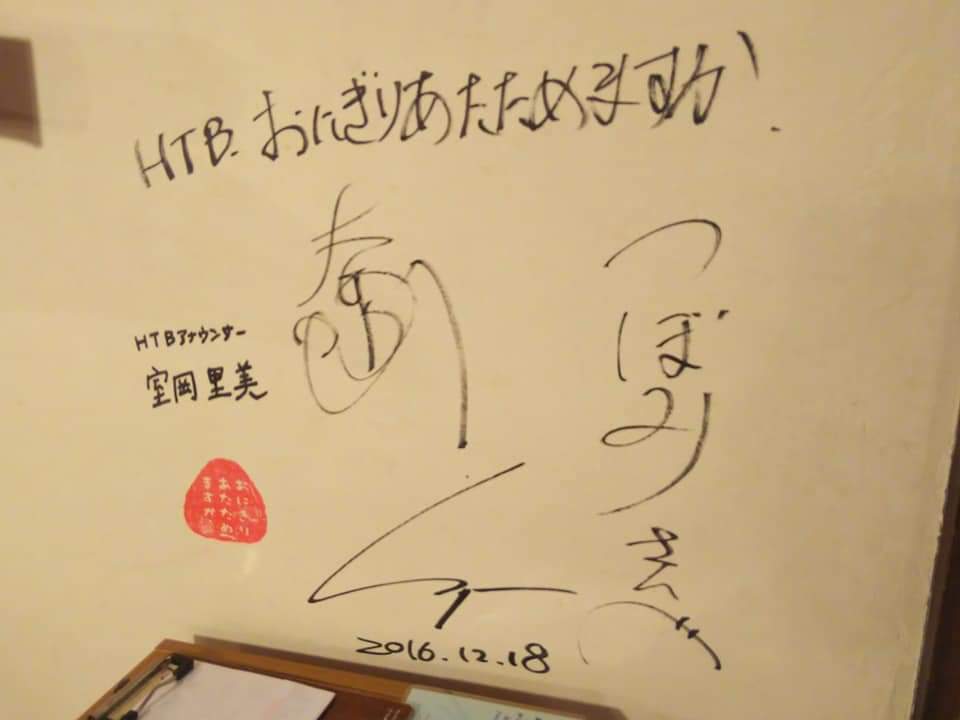 HTB. おにぎりあたためますか
つぼみ
さんへ
HTBアナウンサー
室岡里美
おにぎり
あたため
ますか
2016.12.18